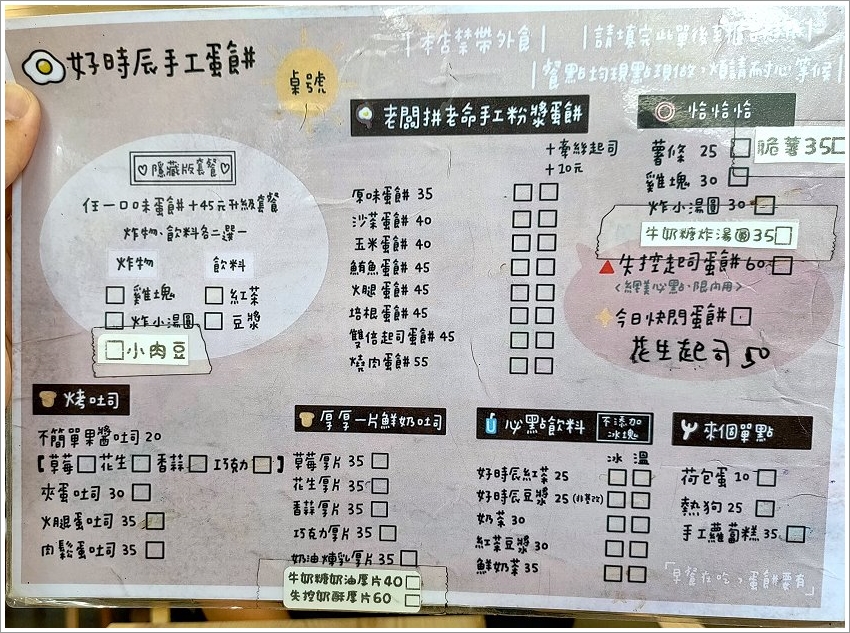 好時辰手工蛋餅
桌號
本店禁帶外食
請填完此單後至
餐點均現點現做,煩請耐心等候
♡隱藏版套餐♡
任一口味蛋餅+45元升級套餐
炸物、飲料各二選一
炸物 飲料
雞塊 紅茶
炸小湯圓 豆漿
小肉豆
老闆拼老命手工粉漿蛋餅
+牽絲起司
+20元
原味蛋餅 35
沙茶蛋餅 40
玉米蛋餅 40
鮪魚蛋餅 45
火腿蛋餅 45
培根蛋餅 45
雙倍起司蛋餅 45
燒肉蛋餅 55
恰恰恰
薯條 25
脆薯35
雞塊 30
炸小湯圓 30
牛奶糖炸湯圓35
失控起司蛋餅 60
<網美必點、限內用>
今日快閃蛋餅
花生起司 50
烤吐司
不簡單果醬吐司 20
【草莓 花生 香蒜 巧克力 】
夾蛋吐司 30
火腿蛋吐司 35
肉鬆蛋吐司 35
厚厚一片鮮奶吐司
草莓厚片 35
花生厚片 35
香蒜厚片 35
巧克力厚片 35
奶油煉乳厚片 35
牛奶糖奶油厚片40
失控奶酥厚片60
必點飲料
不添加
冰塊
冰 溫
好時辰紅茶 25
好時辰豆漿 25 (非基改)
奶茶 30
紅茶豆漿 30
鮮奶茶 35
來個單點
荷包蛋 10
熱狗 25
手工蘿蔔糕 35
「早餐在吃,蛋餅要有」